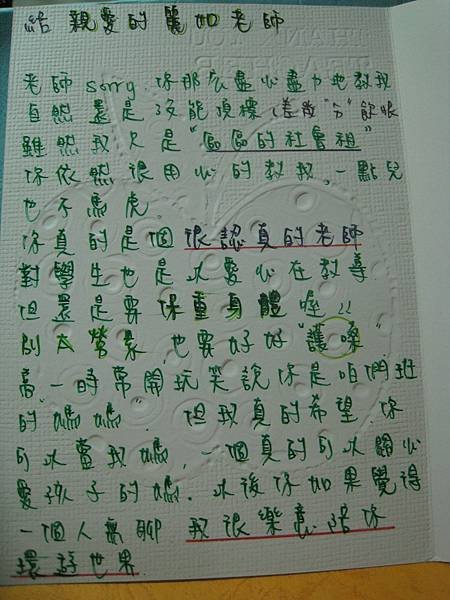 給 親愛的麗如老師
老師 sorry. 你那么盡心盡力地教我
自然還是沒能頂標(差幾"分"飲恨
雖然我只是"區區的社會組"
你依然很用心的教我, 一點兒
也不馬虎.
你真的是個很認真的老師
對學生也是以愛心在教導.
但還是要保重身體喔!!
別太勞累, 也要好好"護嗓"
高一時常開玩笑說你是咱們班
的"媽媽". 但我真的希望, 你
可以當我媽, 一個真的可以關心
愛孩子的媽. 以後你如果覺得
一個人無聊 我很樂意陪你
環遊世界.
THANK YOU
TEACHER